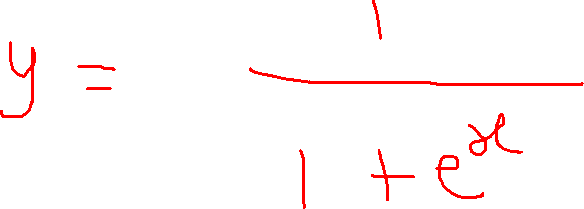 y = 1 / (1 + e^x)